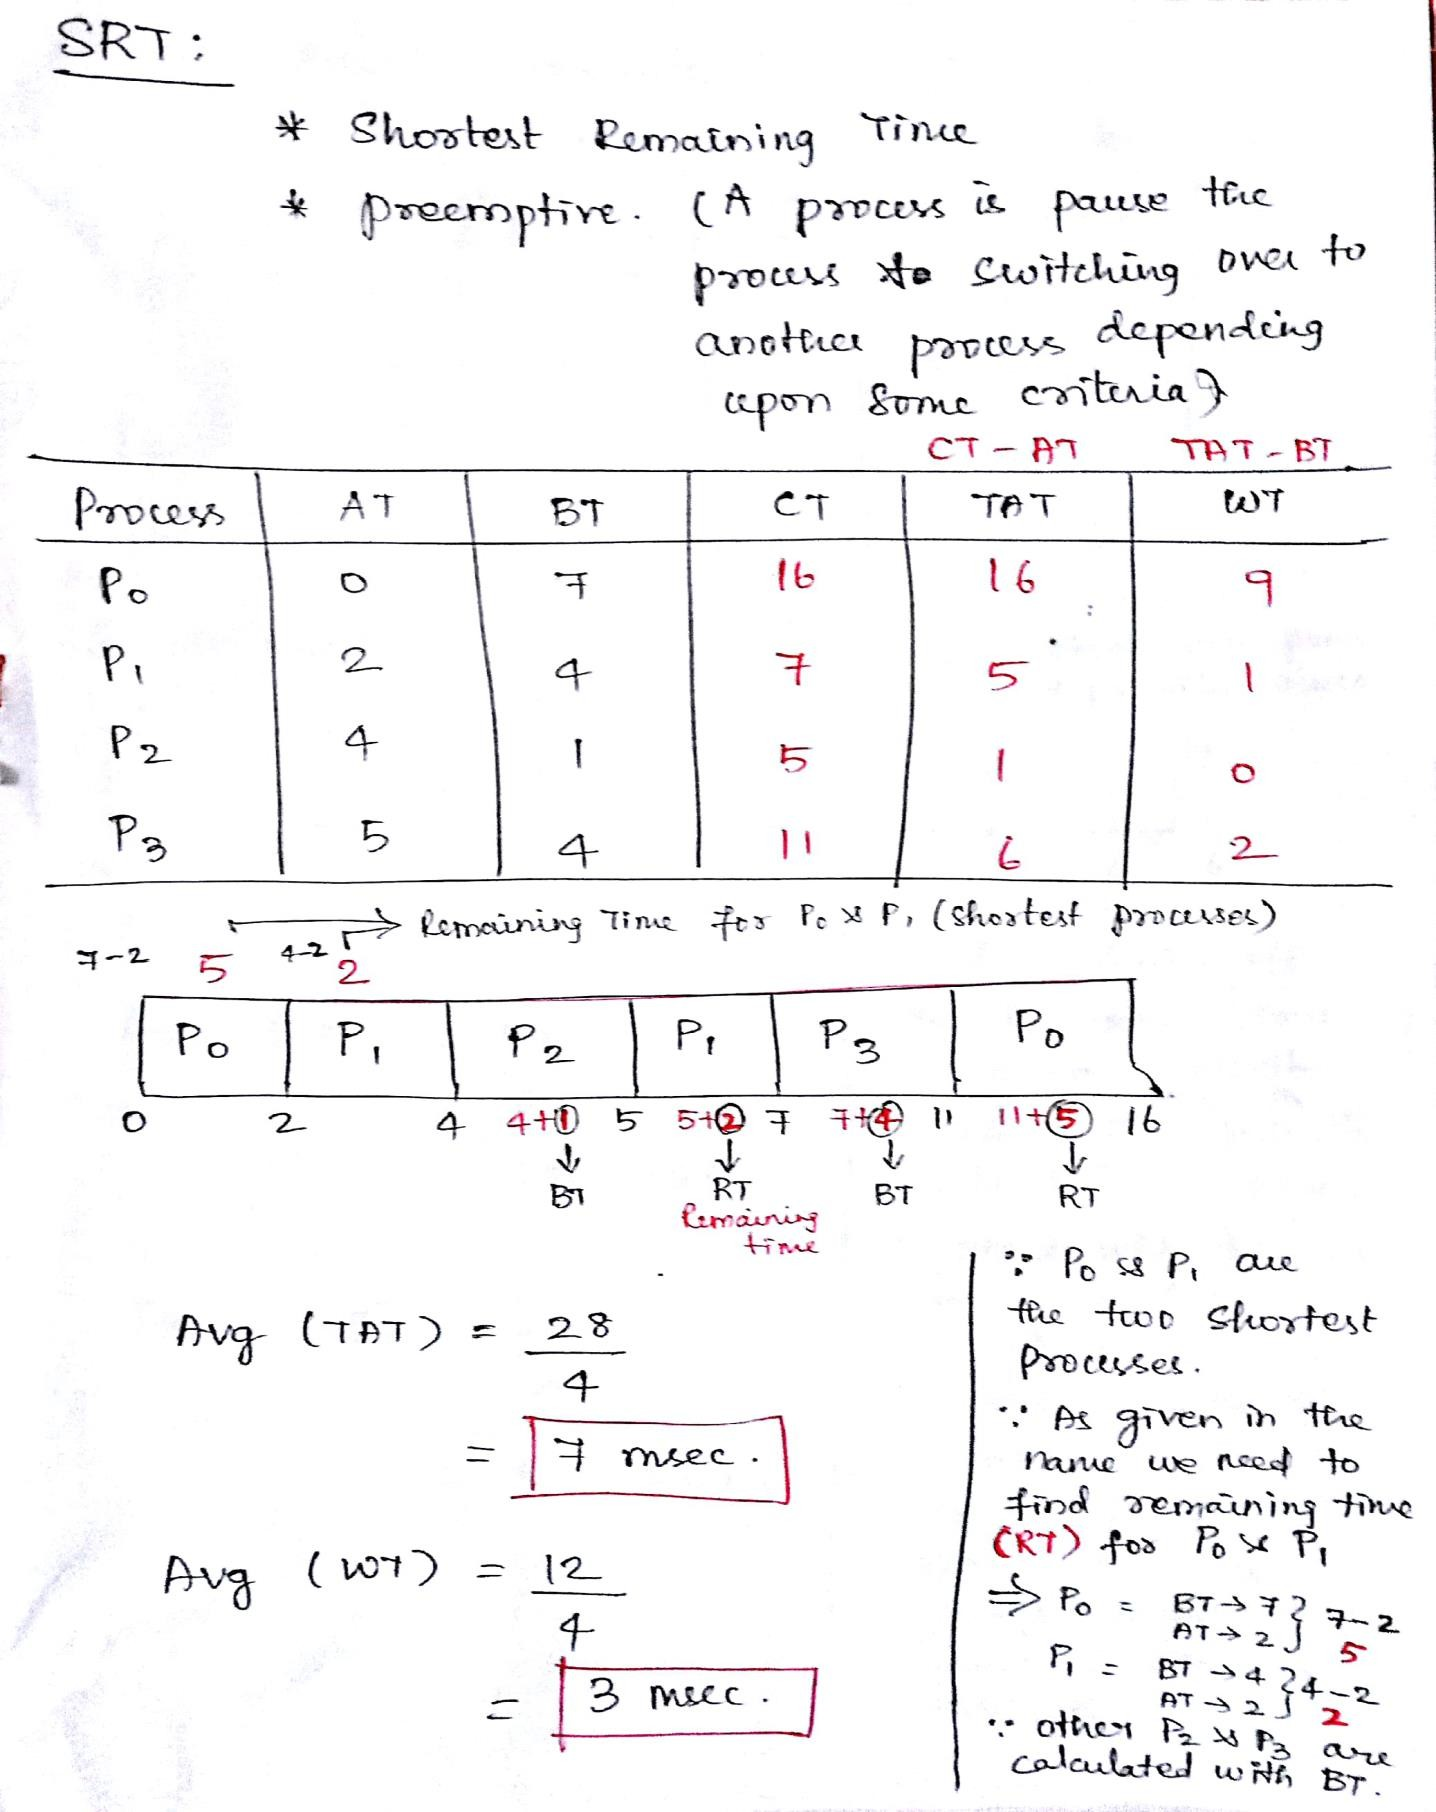 SRT :
* Shortest Remaining Time
* preemptive. (A process is pause the
process to switching over to
another process depending
upon some criteria)
CT - AT TAT - BT
Process AT BT CT TAT WT
P0 0 7 16 16 9
P1 2 4 7 5 1
P2 4 1 5 1 0
P3 5 4 11 6 2
→ Remaining Time for P0 & P1 (shortest processes)
7-2 5 4-2 2
P0 P1 P2 P1 P3 P0
0 2 4 4+1 5 5+2 7 7+4 11 11+5 16
BT RT BT RT
Remaining
time
Avg (TAT) = 28
4
= 7 msec.
Avg (WT) = 12
4
= 3 msec.
∵ P0 & P1 are
the two shortest
processes.
∵ As given in the
name we need to
find remaining time
(RT) for P0 & P1
⇒ P0 = BT → 7 } 7-2
AT → 2 5
P1 = BT → 4 } 4-2
AT → 2 2
∵ other P2 & P3 are
calculated with BT.